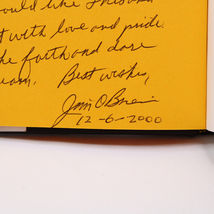 ould like
t with love and pride
the faith and dare
eam. Best wishes,
Jim O'Brien
12-6-2000